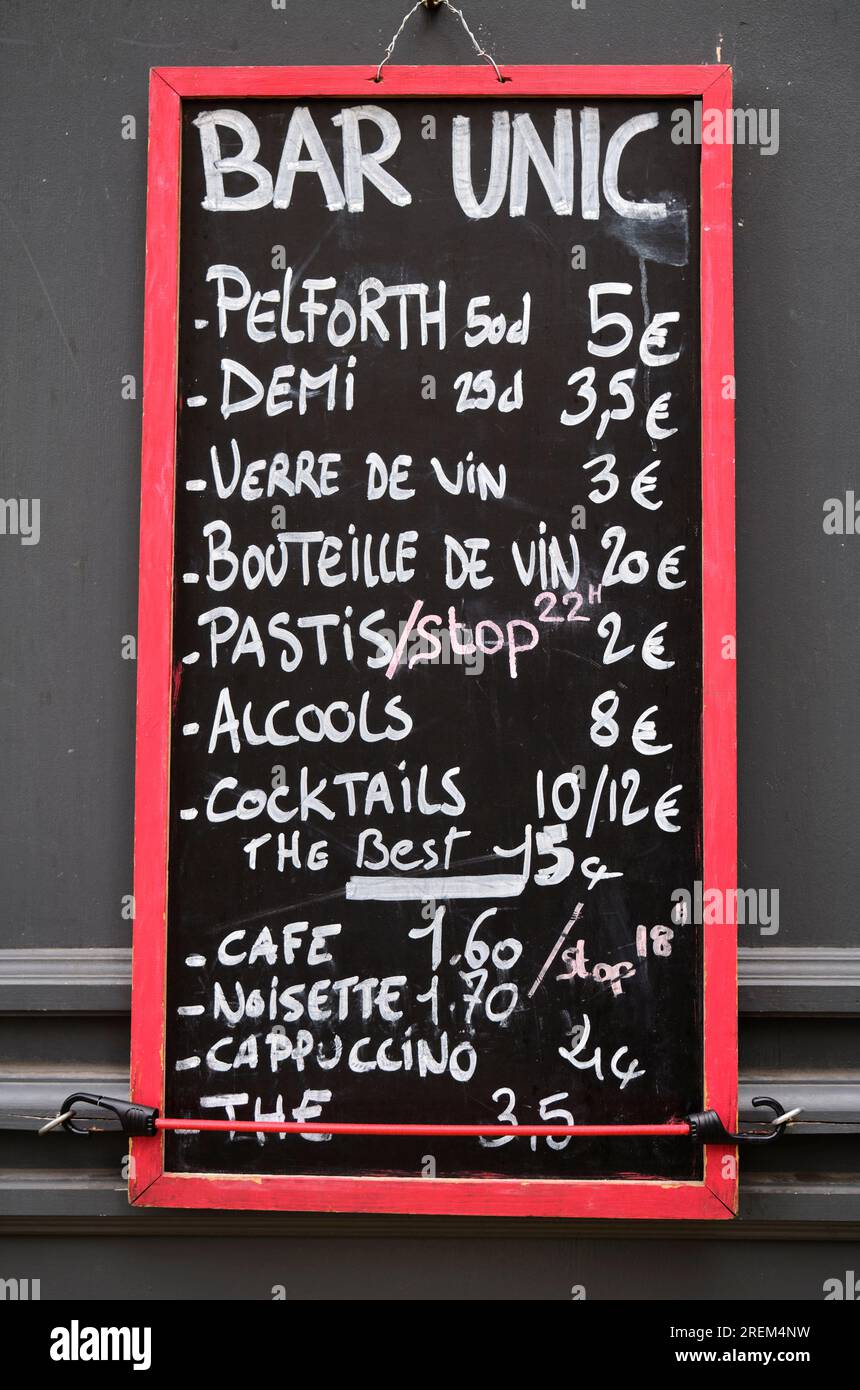 BAR UNIC
- PELFORTH 50cl 5€
- DEMI 25cl 3,5€
- VERRE DE VIN 3€
- BOUTEILLE DE VIN 20€
- PASTIS /STOP 22H 2€
- ALCOOLS 8€
- COCKTAILS 10/12€
THE BEST 15€
- CAFE 1.60 / STOP 18H
- NOISETTE 1.70
- CAPPUCCINO 4€
- THE 3,5
alamy
Image ID: 2REM4NW
www.alamy.com